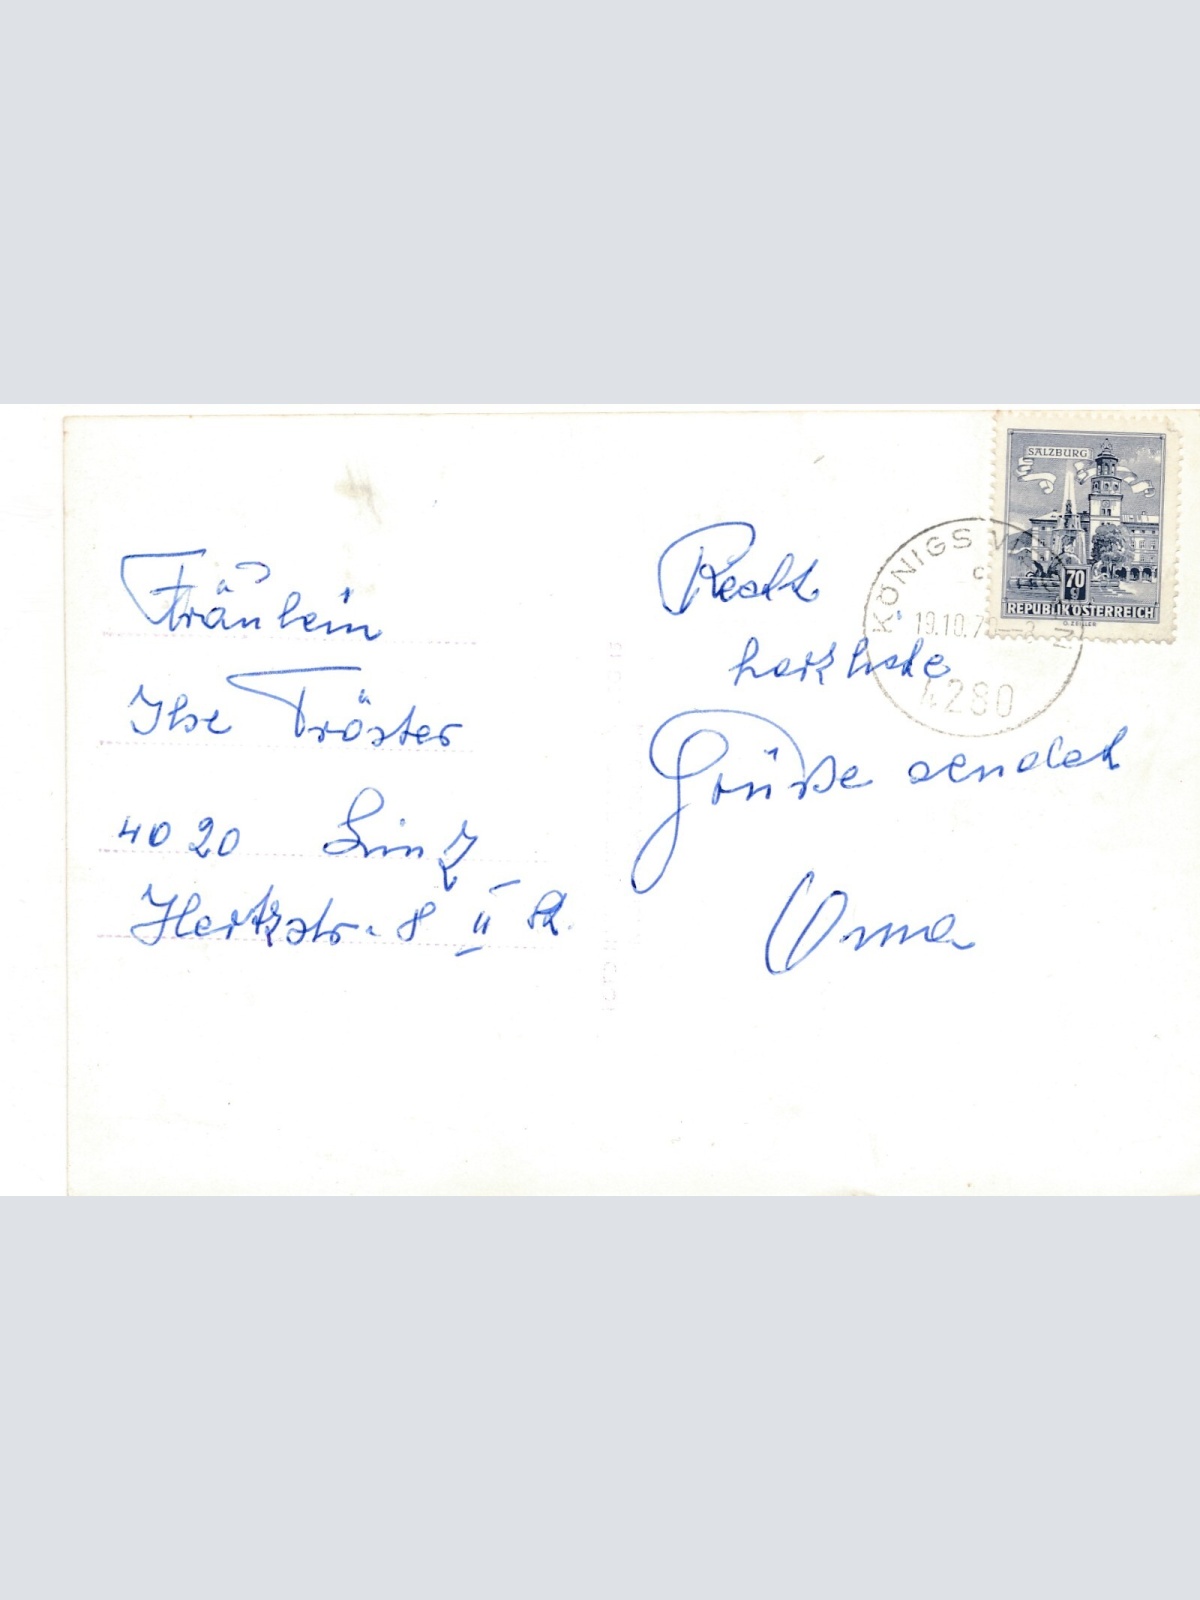 Fräulein
Ilse Tröster
4020 Linz
Hertzstr. 8 II St.
Recht
herzliche
Grüße sendet
Oma
SALZBURG
70
g
REPUBLIK ÖSTERREICH
G. ZEILLER
KÖNIGS
c
19.10.7
4280